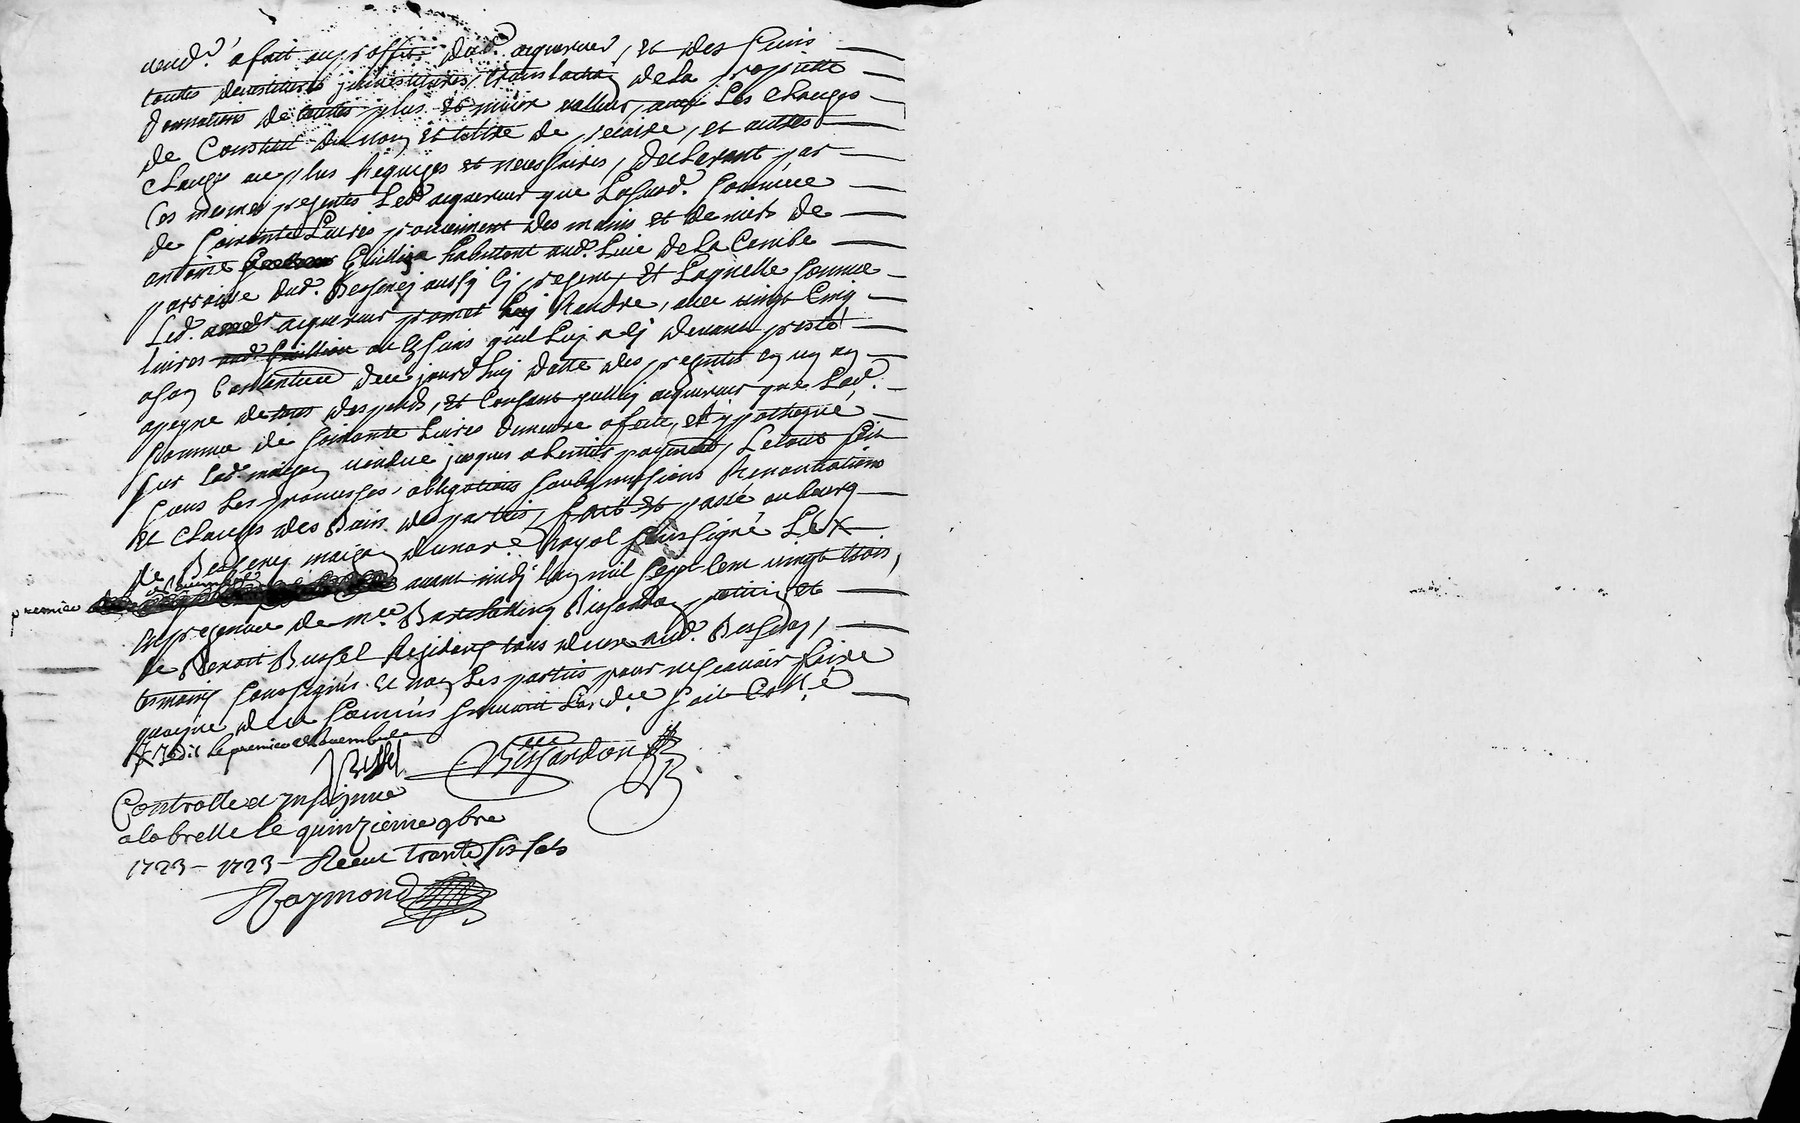 vend.r a fait au proffit dud. acquereur, et des siens
touttes devestitures, investitures, translation de la proprietté
donnations de touttes plus et mieux valleur, avec les clauges
de Constitut du nom et tiltre de precaire, et autres
clauges au plus requizes et necessaires, declarant par
Ces mesmes presentes Led. acquereur que Lasusd. somme
de soixante Livres proviennent des mains et deniers de
antoine Guillion habitant aud. Lieu de La Combe
parroisse dud. Bessenay aussy icy present, et Laquelle somme
Led. acquereur promet luy Randre, avec vingt Cinq
livres qu'il Luy a cy devant presté
a son Contentem. dee jourd'huy datte des presentes en un an
apeyne de tous despends, et Consant led. acquereur que Lad.
somme de soixante Livres demeure afecté, et ypothequé
sur Lad. maison vendue jusques a lentier payement, Le tout soit
sous Les promesses, obligations soubmissions Renontiations
et clauges des Biens desparties, fait et passé au bourg
de Bessenay maison dunore Royal soussigné Le X
premier novembre avant midy lan mil sept Cent vingt trois,
en presence de m.re Barthellemy Bissardon praticien et
de Benoit Bussel Rezidents tous deux aud. Bessenay,
tesmoins soussignés et non Les parties pour ne scavoir faire
quoique de ce sommés suivant Lord.ce soit Con.lé
X Ledit le premier novembre
Bussel Bissardon
Controlle et Insinué
a la brelle le quinzieme 9bre
1723 - 1723 - Receu trante six sols
Raymond